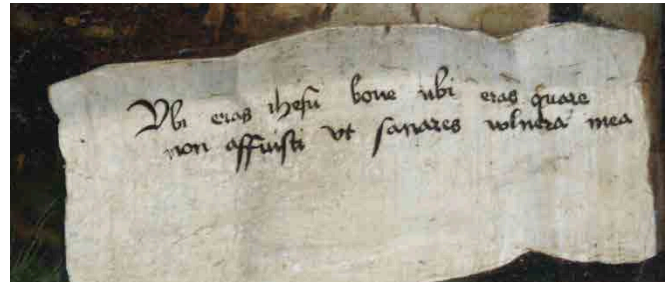 Vbi eras ihesu bone ubi eras quare
non affuisti vt sanares vulnera mea